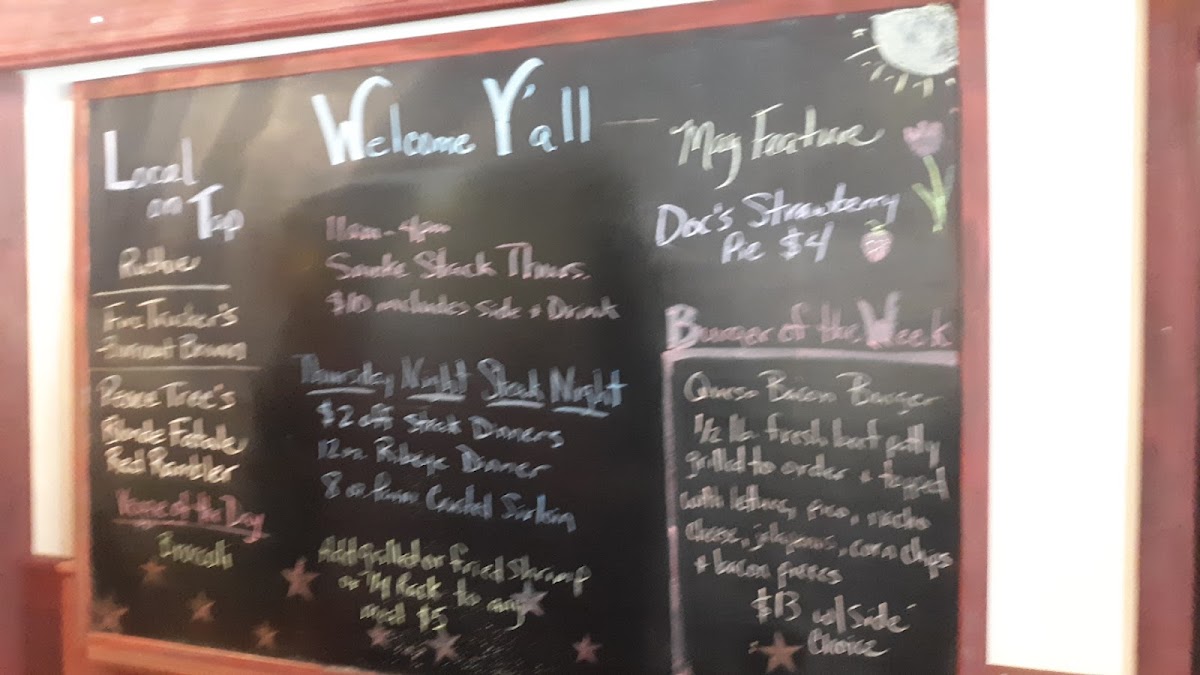 Welcome Y'all
Local
on Tap
Fire Trucker's
Brown
Peace Tree's
Blonde Fatale
Red Rambler
of the Day
Broccoli
11am - 4pm
Smoke Stack Thurs.
$10 includes side + Drink
Thursday Night Steak Night
$2 off Steak Dinners
12oz Ribeye Dinner
8 oz Crusted Sirloin
Add grilled or fried Shrimp
to any
meal $5
May Feature
Doc's Strawberry
Pie $4
Burger of the Week
Queso Bacon Burger
1/2 lb. fresh beef patty
grilled to order + topped
with lettuce, pico, nacho
cheese, jalapenos, corn chips
+ bacon pieces
$13 w/ Side
Choice